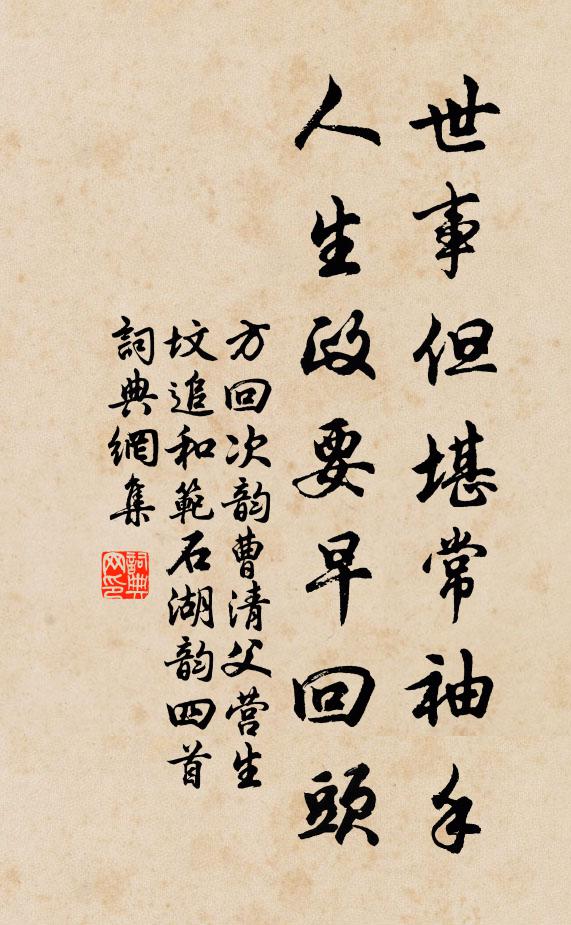 世事但堪常袖手
人生政要早回頭
方回次韵曹清父营生
坟追和範石湖韵四首
詞典網集
詞典
网印